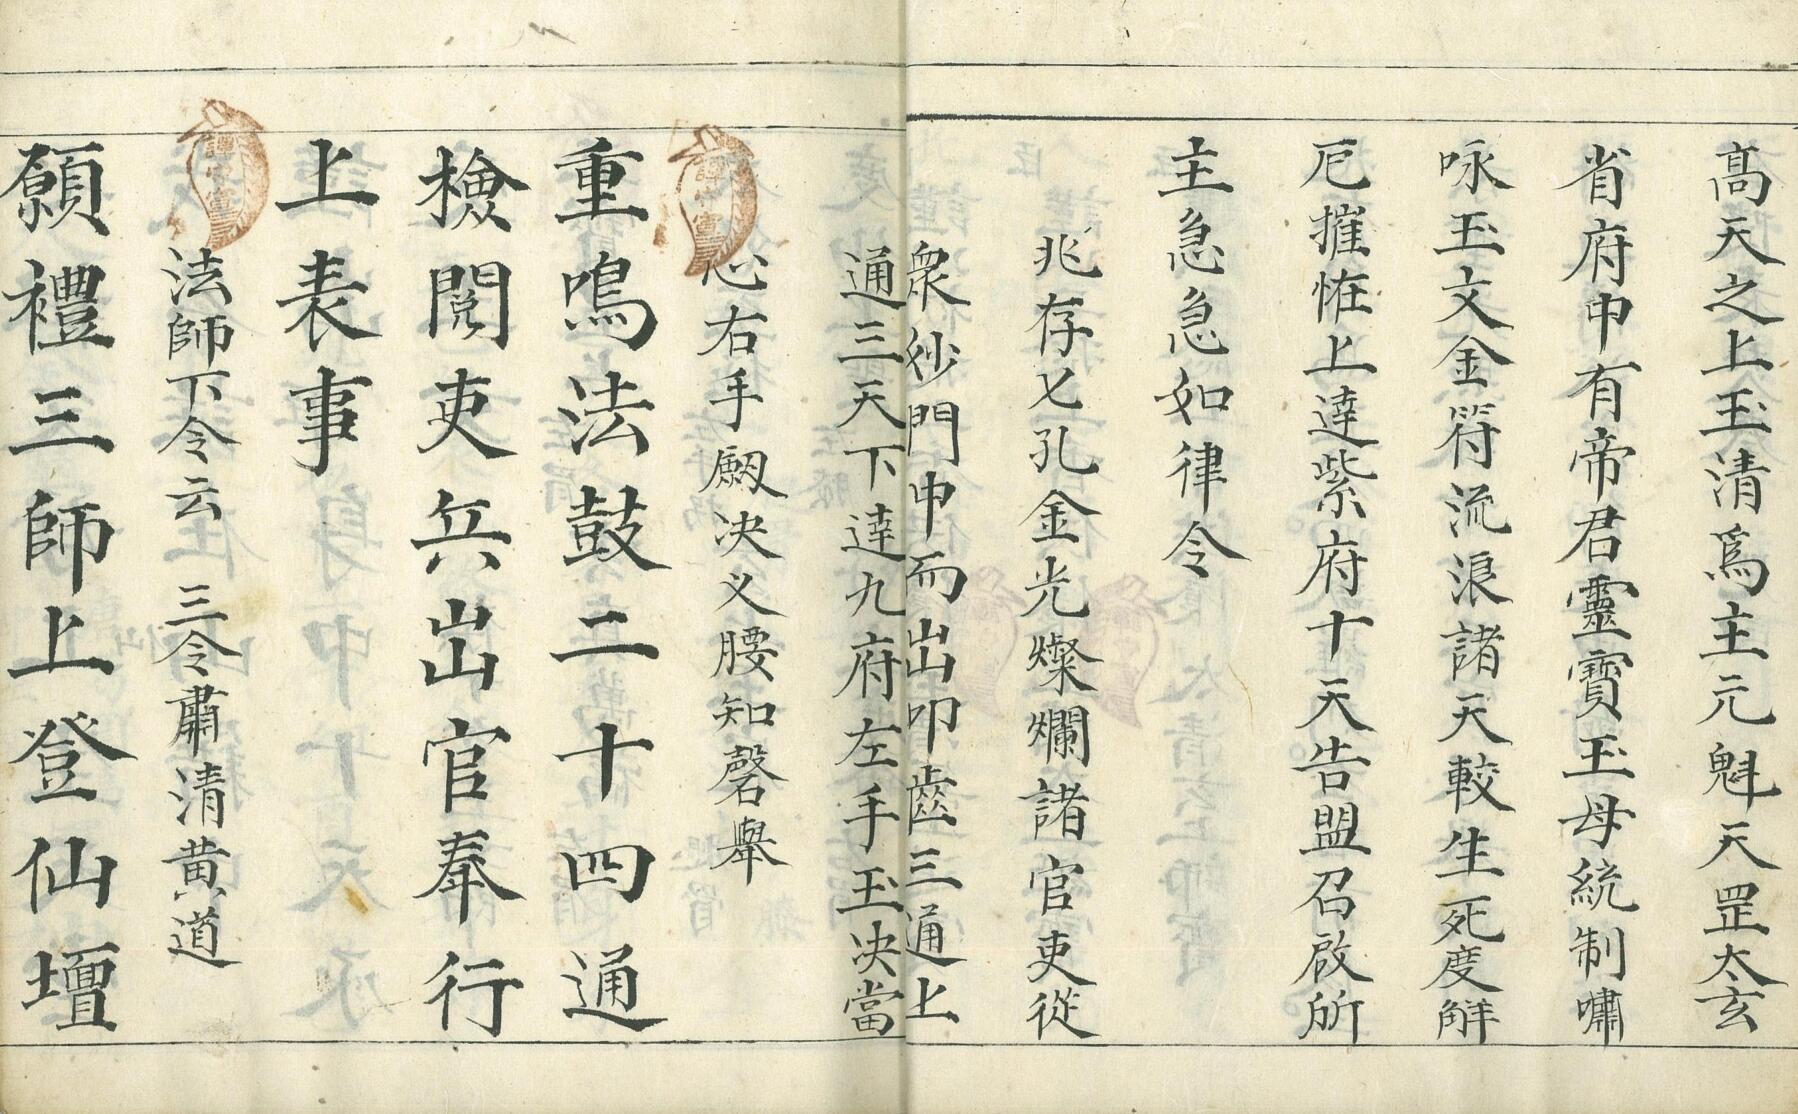 高天之上玉清爲主元魁天罡太玄
省府中有帝君靈寶玉母統制嘯
咏玉文金符流浪諸天較生死度觧
厄摧恠上達紫府十天告盟召啟所
主急急如律令
兆存七孔金光燦爛諸官吏從
衆妙門中而出叩齒三通上
通三天下達九府左手玉决當
心右手劔决义腰知磬舉
重鳴法鼓二十四通
檢閱吏兵出官奉行
上表事
法師下令云 三令肅清黄道
願禮三師上登仙壇